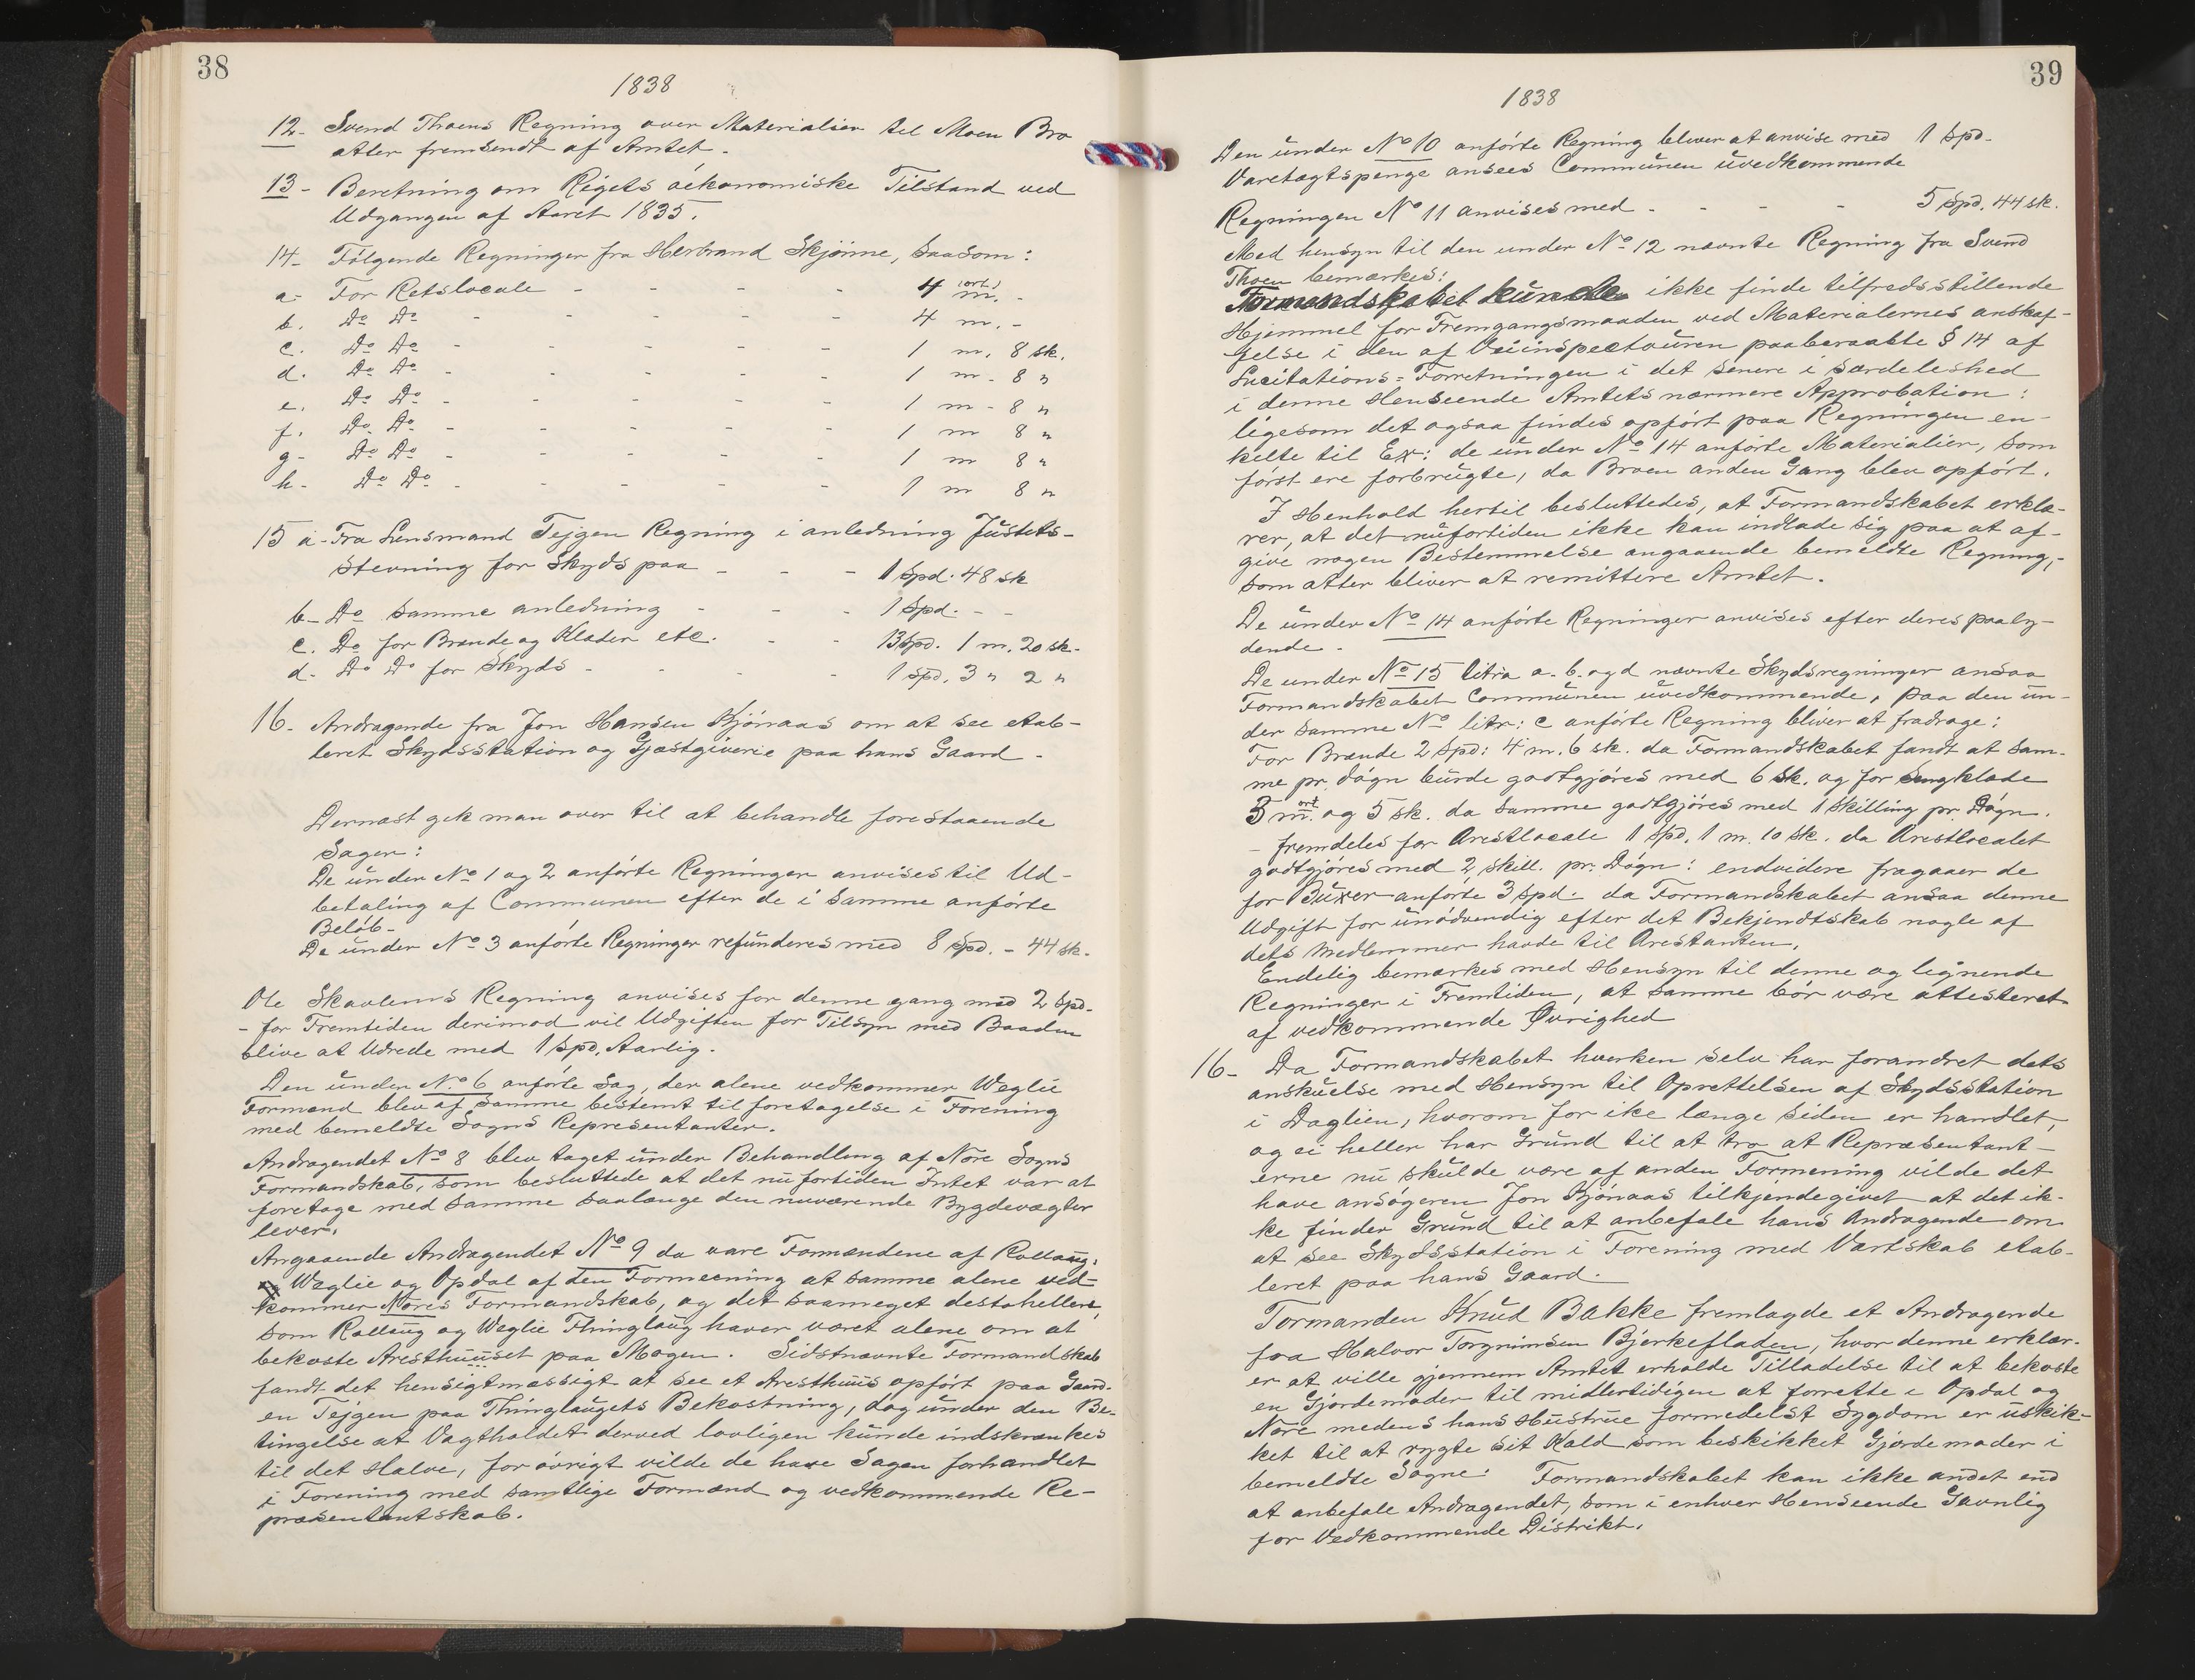 38
1838
12- Svend Thoens Regning over Materialier til Moen Bro
atter fremsendt af Amtet.
13- Beretning om Rigets oékonomiske Tilstand ved
Udgangen af Aaret 1835.
14- Følgende Regninger fra Herbrand Skjönne, saasom:
a- For Retslocale - - - - 4 (ort.) m. -
b. Do Do - - - - - 4 m. -
c. Do Do - - - - - 1 m. 8 sk.
d. Do Do - - - - 1 m - 8 "
e. Do Do - - - - 1 m - 8 "
f. Do Do - - - - - 1 m 8 "
g- Do Do - - - - - 1 m 8 "
h- Do Do - - - - - 1 m 8 "
15 a- Fra Lensmand Tejgen Regning i anledning Justits-
stevning for Skyds paa - - - 1 Spd: 48 sk
b- Do samme anledning - - - 1 Spd. - -
c. Do for Brænde og Klæder etc. - - 13 Spd. 1 m. 20 sk.
d- Do Do for Skyds - - - 1 spd. 3 " 2 "
16. Andragende fra Jon Hansen Kjönaas om at see etab-
leret Skydsstation og Gjæstgiverie paa hans Gaard -
Dernæst gik man over til at behandle forestaaende
Sager:
De under No 1 og 2 anförte Regninger anvises til Ud-
betaling af Communen efter de i samme anförte
Belöb-
De under No 3 anförte Regninger refunderes med 8 Spd. - 44 sk.
Ole Skavlems Regning anvises for denne gang med 2 Spd-
- for Fremtiden derimod vil Udgiften for Tilsyn med Baaden
blive at Udrede med 1 Spd. Aarlig.
Den under No 6 anförte Sag, der alene vedkommer Weglie
Formænd blev af samme bestemt til foretagelse i Forening
med bemeldte Sogns Representanter.
Andragendet No 8 blev taget under Behandling af Nore Sogns
Formandskab, som besluttede at det nu fortiden Intet var at
foretage med samme saalænge den nuværende Bygdevægter
lever.
Angaaende Andragendet No 9 da vare Formændene af Rollaug,
Weglie og Opdal af den Formeening at samme alene ved-
kommer Nores Formandskab, og det saameget destohellere,
som Rollaug og Weglie Thinglaug haver været alene om at
bekoste Aresthuuset paa Mogen. Sidstnævnte Formandskab
fandt det hensigtmæssigt at see et Aresthuus opfört paa Gaard-
en Tejgen paa Thinglaugets Bekostning, dog under den Be-
tingelse at Vagtholdet derved lovligen kunde indskrænkes
til det Halve, for övrigt vilde de have Sagen forhandlet
i Forening med samtlige Formænd og vedkommende Re-
præsentantskab.
39
1838
Den under No 10 anförte Regning bliver at anvise med 1 Spd-
Varetægtspenge ansees Communen uvedkommende
Regningen No 11 anvises med - - - - 5 Spd. 44 sk.
Med hensyn til den under No 12 nævnte Regning fra Svend
Thoen bemærkes:
Formandskabet kunde ikke finde tilfredsstillende
Hjemmel for Fremgangsmaaden ved Materialernes anskaf-
felse i den af Veiinspecteuren paaberaabte § 14 af
Licitations=Forretningen i det senere i særdeleshed
i denne Henseende Amtets nærmere Approbation:
ligesom det ogsaa findes opfört paa Regningen en-
kelte til Ex: de under No 14 anförte Materialier, som
först ere forbrugte, da Broen anden Gang blev opfört.
I Henhold hertil besluttedes, at Formandskabet erklæ-
rer, at det nufortiden ikke kan indlade sig paa at af-
give nogen Bestemmelse angaaende bemeldte Regning,-
som atter bliver at remittere Amtet.
De under No 14 anförte Regninger anvises efter deres paaly-
dende -
De under No 15 litra a. b. og d nævnte Skydsregninger ansaa
Formandskabet Communen uvedkommende, paa den un-
der samme No litr: c anförte Regning bliver at fradrage:
For Brænde 2 Spd: 4 m. 6 sk. da Formandskabet fandt at sam-
me pr. dögn burde godtgjöres med 6 sk. og for Sengklæde
3 ort m. og 5 sk. da samme godtgjöres med 1 skilling pr. Dögn.
- fremdeles for Arestlocale 1 Spd. 1 m. 10 sk. da Arestlocalet
godtgjöres med 2 skill. pr. Dögn: endvidere fragaaer de
for Buxer anförte 3 spd. da Formandskabet ansaa denne
Udgift for unödvendig efter det Bekjendtskab nogle af
dets medlemmer havde til Arestanten.
Endelig bemærkes med Hensyn til denne og lignende
Regninger i Fremtiden, at samme bör være attesteret
af vedkommende Øvrighed
16- Da Formandskabet hverken selv har forandret dets
anskuelse med Hensyn til Oprettelsen af Skydsstation
i Daglien, hvorom for ike længe siden er handlet,
og ei heller har Grund til at tro at Repræsentant-
erne nu skulde være af anden Formening vilde det
have ansögeren Jon Kjönaas tilkjendegivet at det ik-
ke finder Grund til at anbefale hans Andragende om
at see Skydsstation i Forening med Værtskab etab-
leret paa hans Gaard.
Formanden Knud Bakke fremlagde et Andragende
fra Halvor Torgrimsen Bjerkefladen, hvor denne erklær-
er at ville gjennem Amtet erholde Tilladelse til at bekoste
en Gjordemoder til midlertidigen at forrette i Opdal og
Nore medens hans Hustrue formedelst Sygdom er uskik-
ket til at rygte sit Kald som beskikket Gjordemoder i
bemeldte Sogne: Formandskabet kan ikke andet end
at anbefale Andragendet, som i enhver Henseende Gavnlig
for Vedkommende Distrikt.